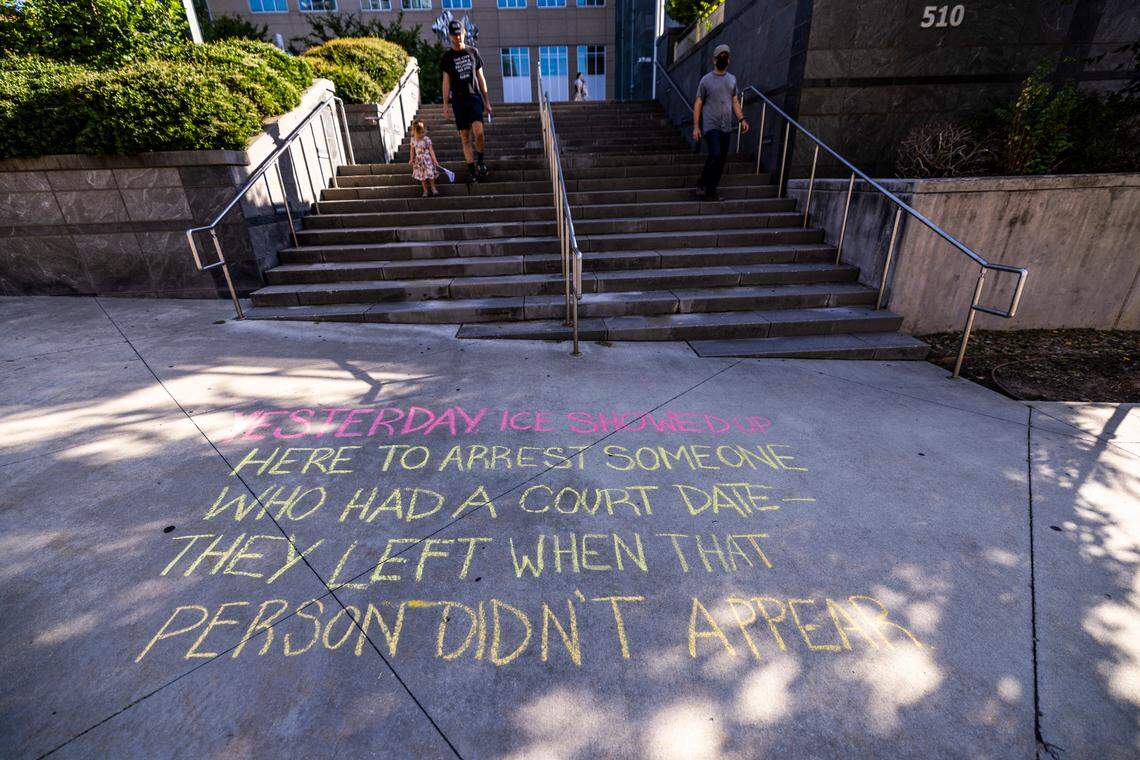 510
YESTERDAY ICE SHOWED UP
HERE TO ARREST SOMEONE
WHO HAD A COURT DATE—
THEY LEFT WHEN THAT
PERSON DIDN'T APPEAR